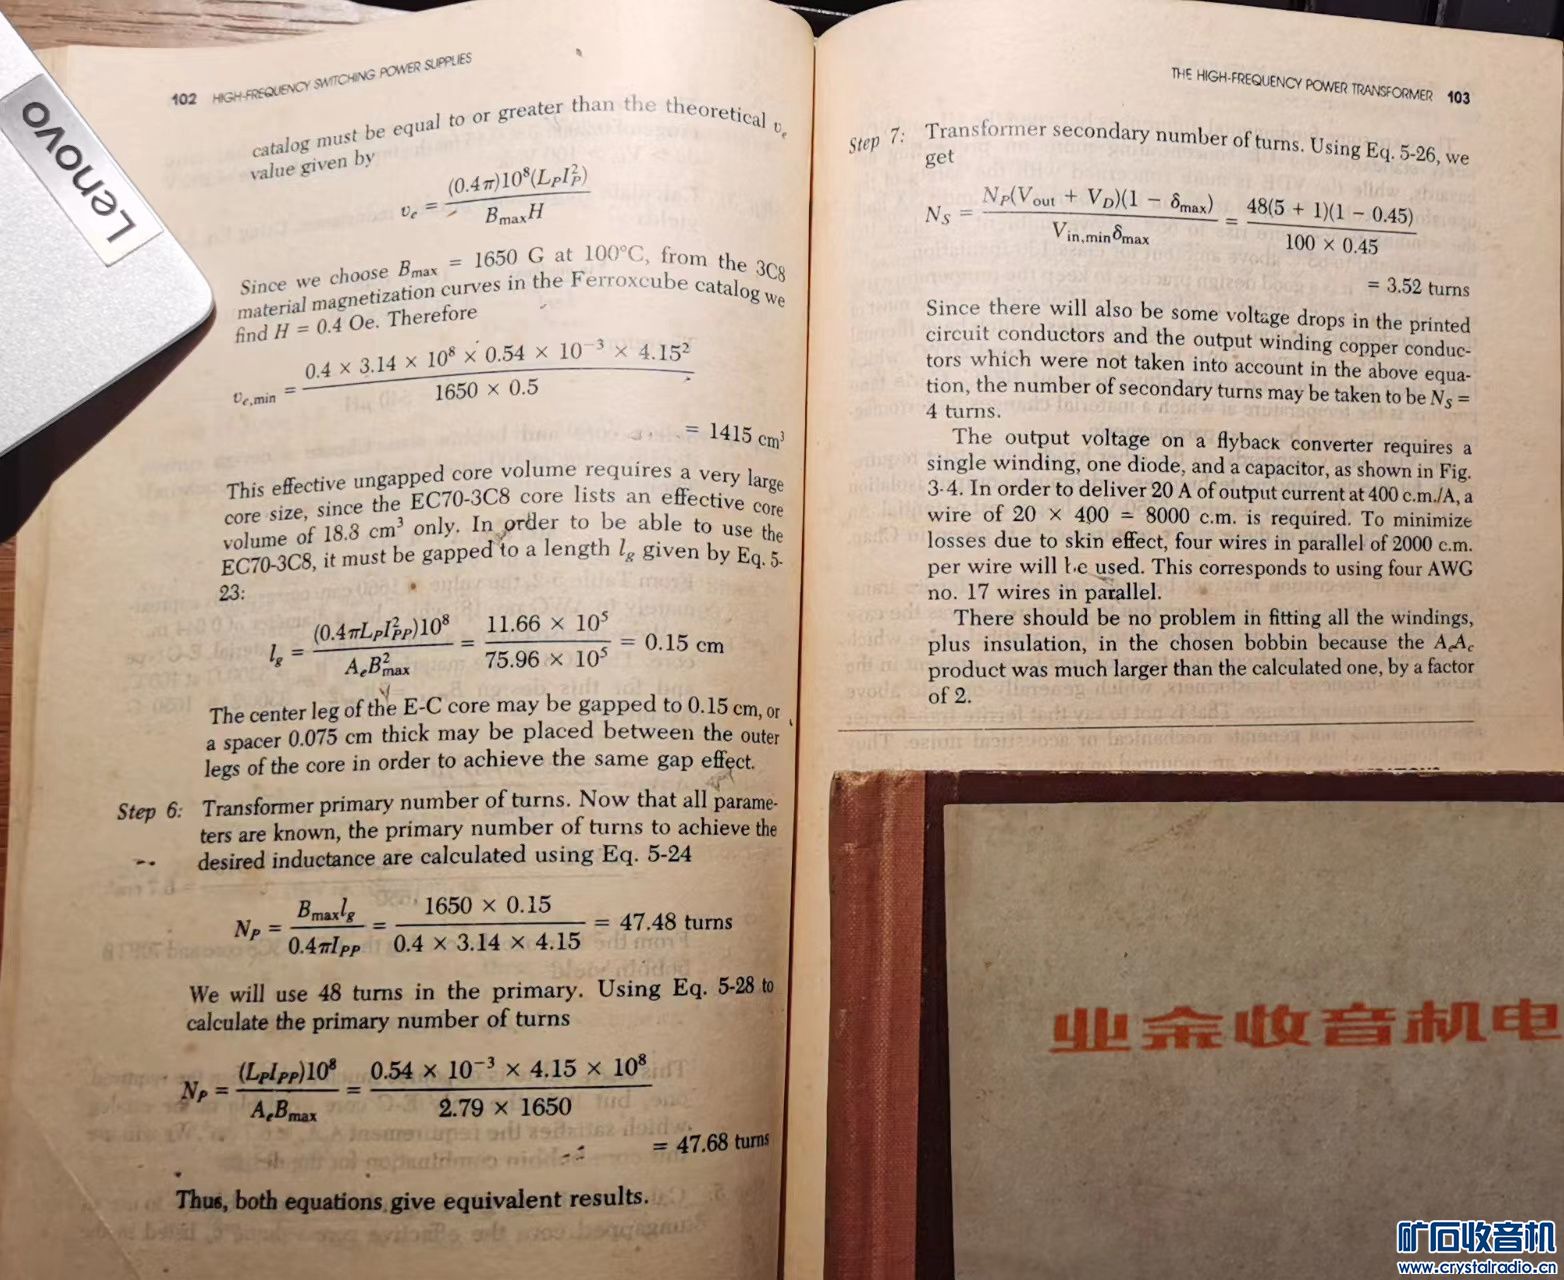 Lenovo
102 HIGH-FREQUENCY SWITCHING POWER SUPPLIES
catalog must be equal to or greater than the theoretical v_e
value given by
v_e = (0.4π)10⁸(L_P I_P²) / B_max H
Since we choose B_max = 1650 G at 100°C, from the 3C8
material magnetization curves in the Ferroxcube catalog we
find H = 0.4 Oe. Therefore
v_e,min = 0.4 × 3.14 × 10⁸ × 0.54 × 10⁻³ × 4.15² / 1650 × 0.5
= 1415 cm³
This effective ungapped core volume requires a very large
core size, since the EC70-3C8 core lists an effective core
volume of 18.8 cm³ only. In order to be able to use the
EC70-3C8, it must be gapped to a length l_g given by Eq. 5-
23:
l_g = (0.4πL_P I_PP²)10⁸ / A_e B²_max = 11.66 × 10⁵ / 75.96 × 10⁵ = 0.15 cm
The center leg of the E-C core may be gapped to 0.15 cm, or
a spacer 0.075 cm thick may be placed between the outer
legs of the core in order to achieve the same gap effect.
Step 6: Transformer primary number of turns. Now that all parame-
ters are known, the primary number of turns to achieve the
desired inductance are calculated using Eq. 5-24
N_P = B_max l_g / 0.4πI_PP = 1650 × 0.15 / 0.4 × 3.14 × 4.15 = 47.48 turns
We will use 48 turns in the primary. Using Eq. 5-28 to
calculate the primary number of turns
N_P = (L_P I_PP)10⁸ / A_e B_max = 0.54 × 10⁻³ × 4.15 × 10⁸ / 2.79 × 1650
= 47.68 turns
Thus, both equations give equivalent results.
THE HIGH-FREQUENCY POWER TRANSFORMER 103
Step 7: Transformer secondary number of turns. Using Eq. 5-26, we
get
N_S = N_P(V_out + V_D)(1 − δ_max) / V_in,min δ_max = 48(5 + 1)(1 − 0.45) / 100 × 0.45
= 3.52 turns
Since there will also be some voltage drops in the printed
circuit conductors and the output winding copper conduc-
tors which were not taken into account in the above equa-
tion, the number of secondary turns may be taken to be N_S =
4 turns.
The output voltage on a flyback converter requires a
single winding, one diode, and a capacitor, as shown in Fig.
3-4. In order to deliver 20 A of output current at 400 c.m./A, a
wire of 20 × 400 = 8000 c.m. is required. To minimize
losses due to skin effect, four wires in parallel of 2000 c.m.
per wire will be used. This corresponds to using four AWG
no. 17 wires in parallel.
There should be no problem in fitting all the windings,
plus insulation, in the chosen bobbin because the A_e A_c
product was much larger than the calculated one, by a factor
of 2.
业余收音机电
矿石收音机
www.crystalradio.cn